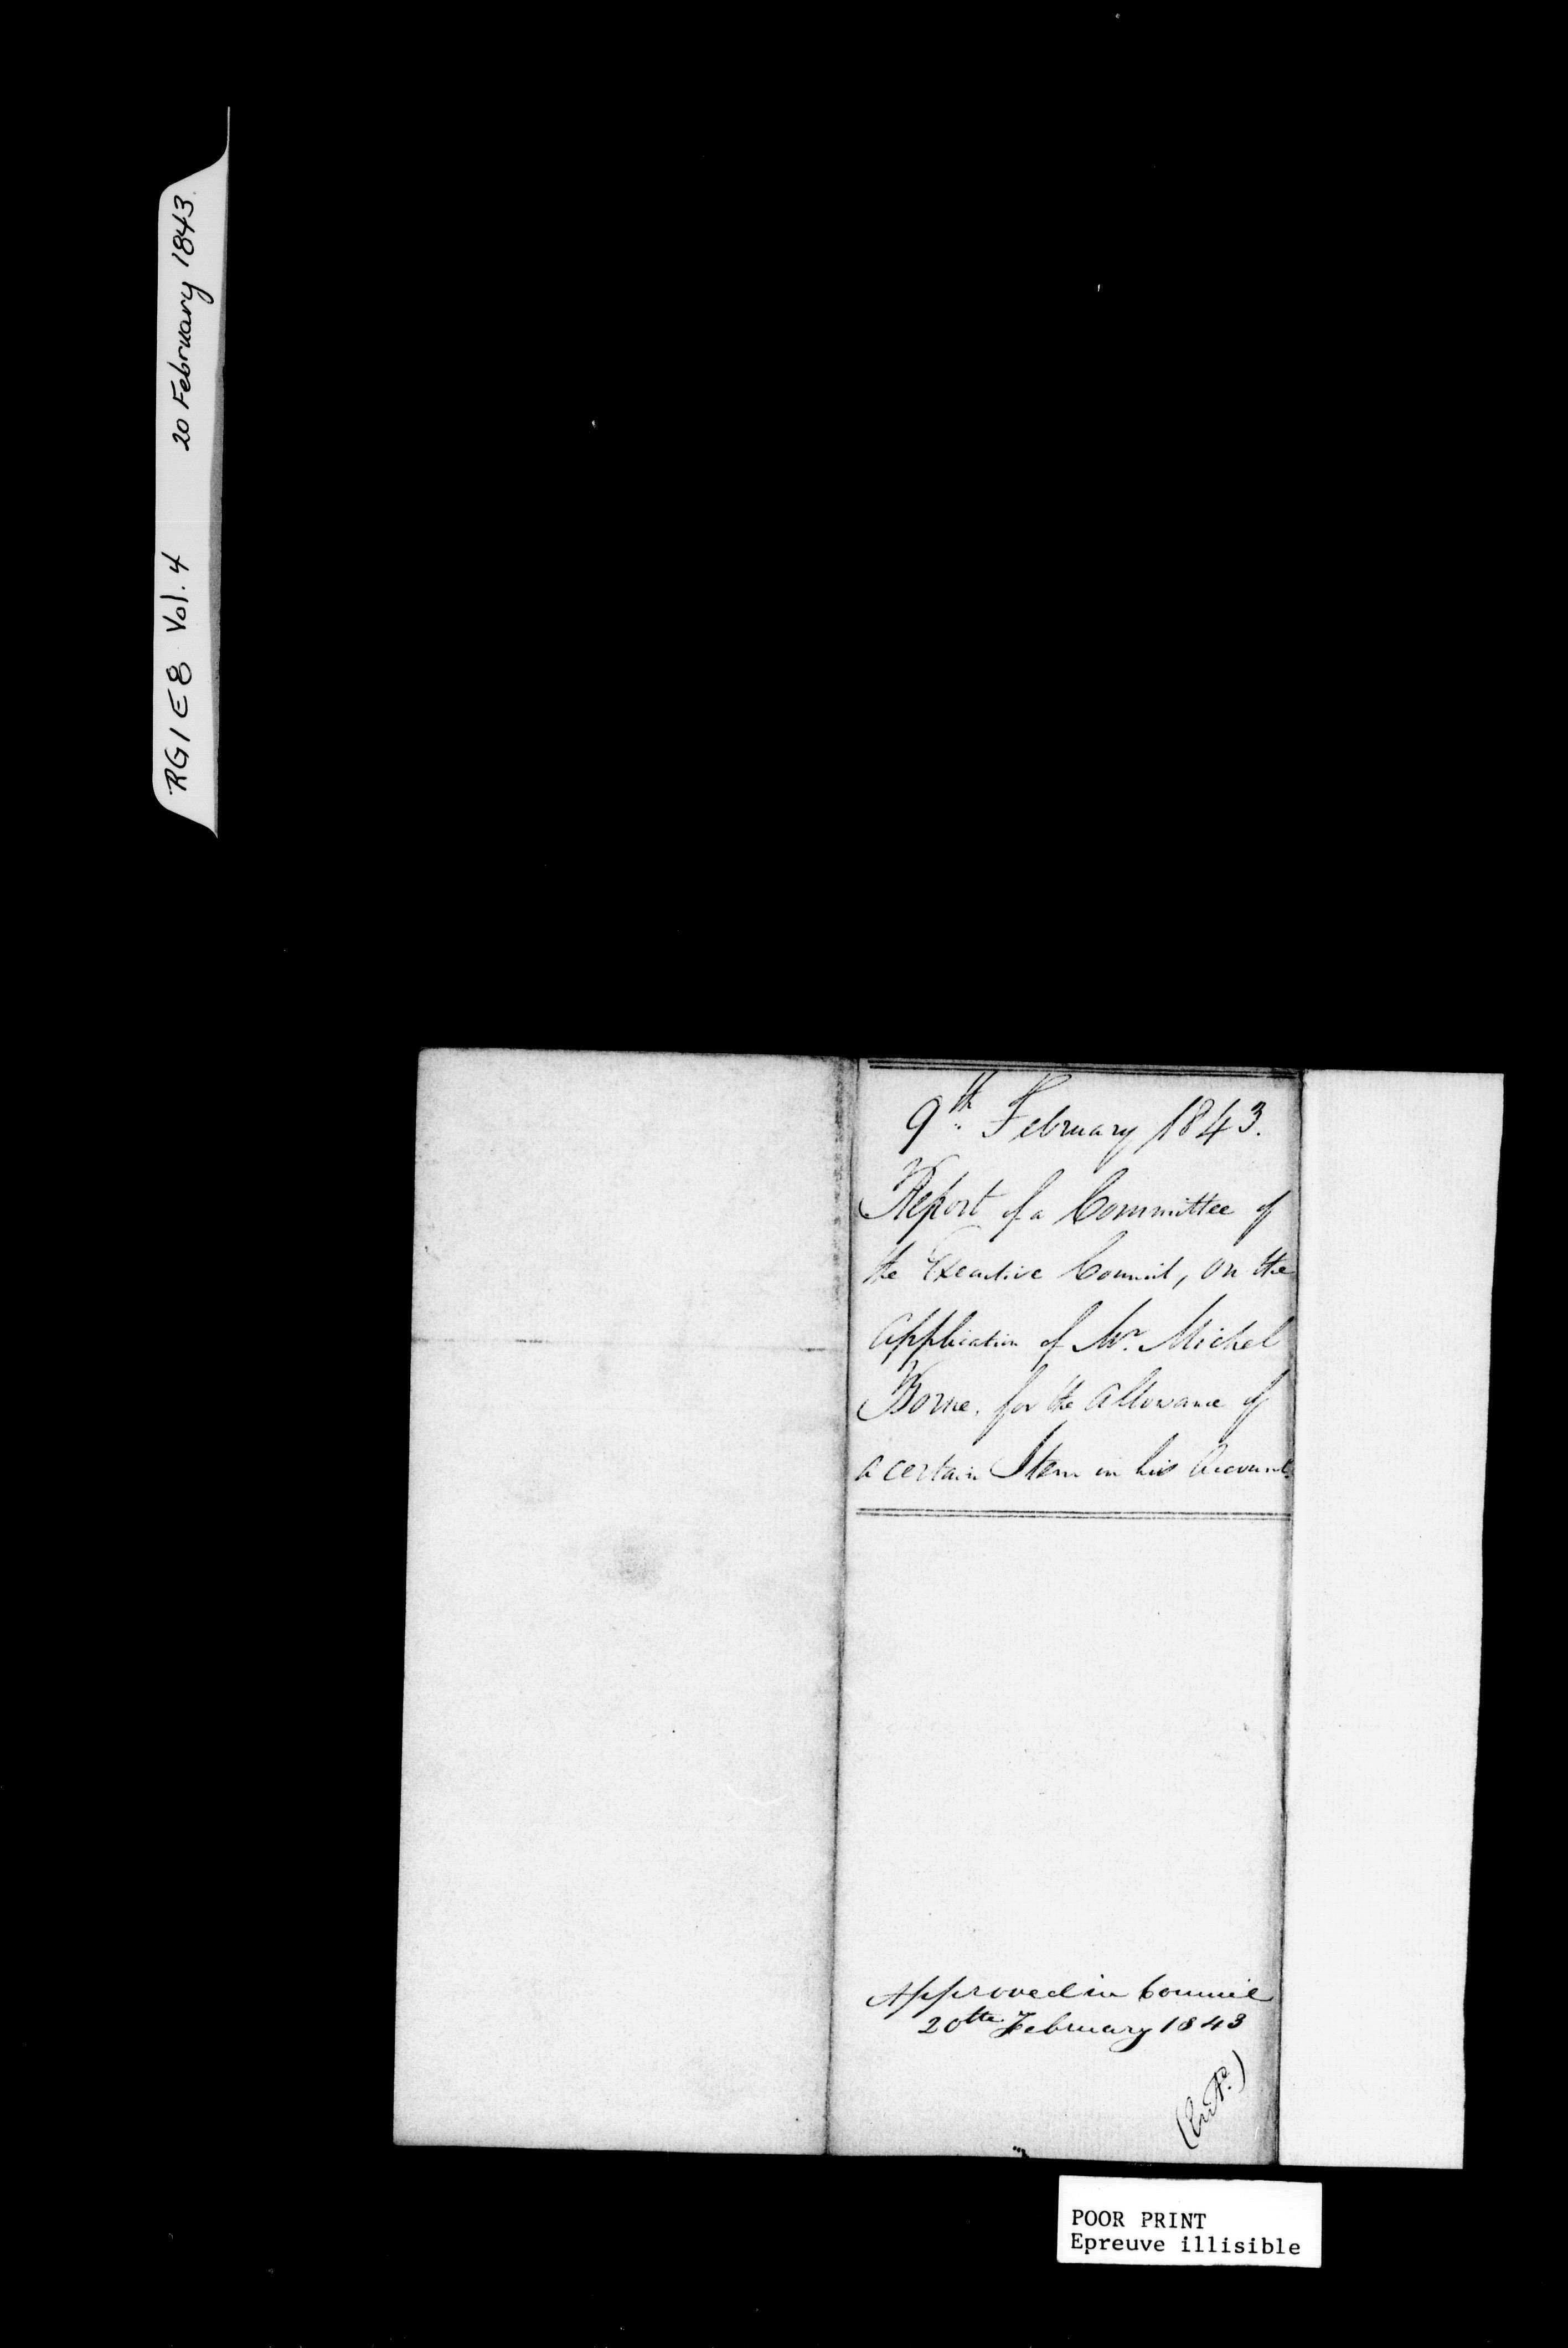 RG1 E8 Vol. 4 20 February 1843
9th February 1843.
Report of a Committee of
the Executive Council, on the
Application of Mr. Michel
Borne, for the Allowance of
a certain Item in his Account
Approved in Council
20th February 1843
(Entd.)
POOR PRINT
Epreuve illisible